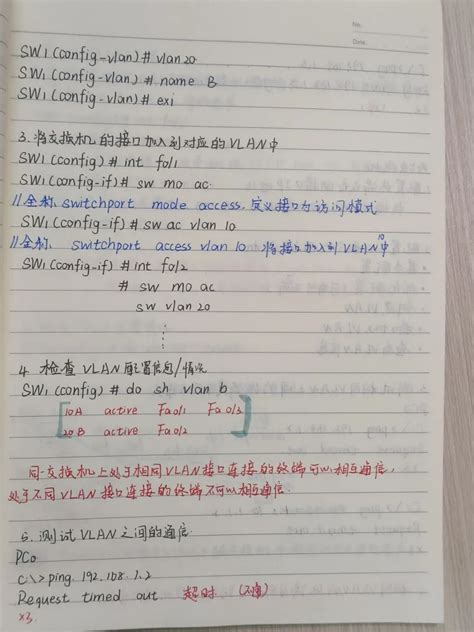 No:
Date:
SW1(config-vlan)# vlan 20
SW1(config-vlan)# name B
SW1(config-vlan)# exi
3.将交换机的接口加入到对应的VLAN中
SW1(config)# int f0/1
SW1(config-if)# sw mo ac
//全称 switchport mode access, 定义接口为访问模式
SW1(config-if)# sw ac vlan 10
//全称 switchport access vlan 10 将接口加入到VLAN10中
SW1(config-if)# int f0/2
# sw mo ac
sw vlan 20
4. 检查VLAN配置信息/情况
SW1(config)# do sh vlan b
10 A active Fa0/1 Fa0/3
20 B active Fa0/2
同一交换机上处于相同VLAN接口连接的终端可以相互通信,
处于不同VLAN接口连接的终端不可以相互通信.
5. 测试VLAN之间的通信
PC0
C:\>ping 192.168.1.2
Request timed out 超时
x3